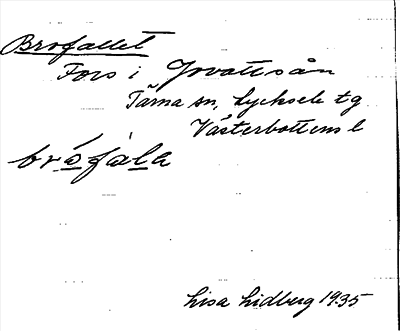 Brofallet
Fors i Jovattsån
Tärna sn, Lycksele tg
Västerbottens l
brófàla
Lisa Lidberg 1935